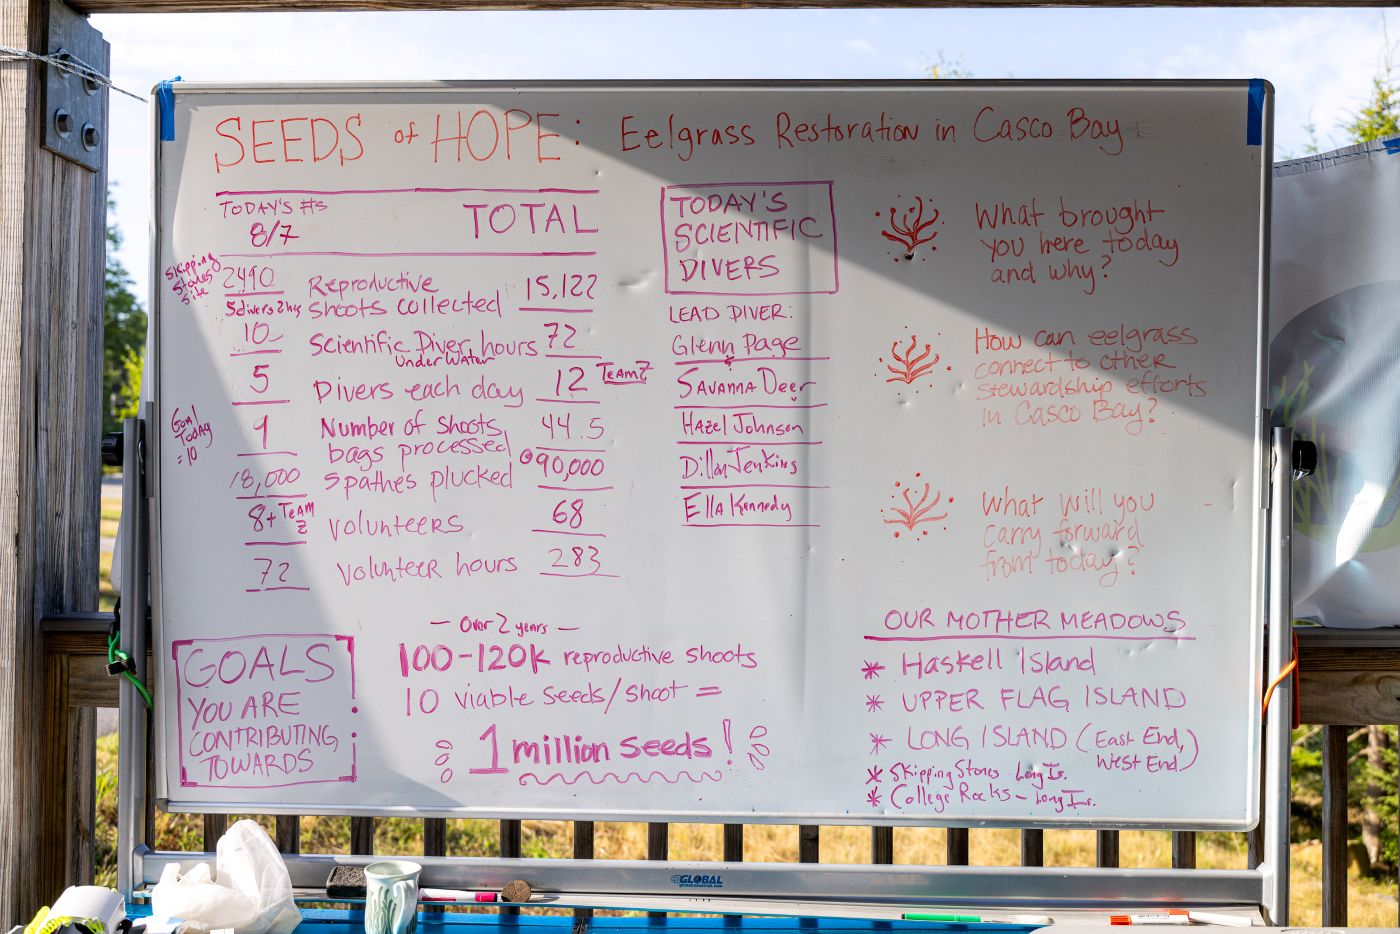 SEEDS of HOPE: Eelgrass Restoration in Casco Bay
TODAY'S #s
8/7
TOTAL
Skipping
Stones
site
2490 Reproductive shoots collected 15,122
5 divers 2 hrs
10 Scientific Diver hours 72
under water
5 Divers each day 12 TEAM Z
Goal
Today
= 10
9 Number of shoots, bags processed 44.5
18,000 spathes plucked 90,000
8+ TEAM Z VOLUNTEERS 68
72 VOLUNTEER hours 283
TODAY'S
SCIENTIFIC
DIVERS
LEAD DIVER:
Glenn Page
SAVANNA Deer
HAZel Johnson
Dillon Jenkins
Ella Kennedy
What brought
you here today
and why?
How can eelgrass
connect to other
stewardship efforts
in Casco Bay?
What will you
carry forward
from today?
GOALS
YOU ARE
CONTRIBUTING
TOWARDS
— Over 2 years —
100-120K reproductive shoots
10 viable seeds/shoot =
1 million seeds!
OUR MOTHER MEADOWS
* Haskell Island
* UPPER FLAG ISLAND
* LONG ISLAND (East End, West End)
* Skipping Stones - Long Is.
* College Rocks - Long Is.
GLOBAL
globalindustrial.com